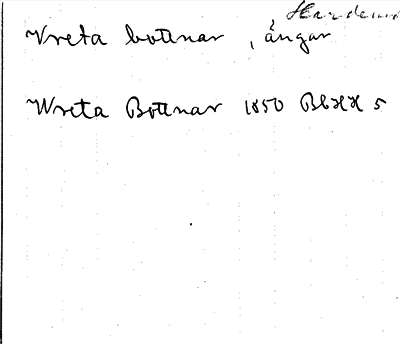 Vreta bottnar, ängar
Wreta Bottnar 1850 BlXX 5